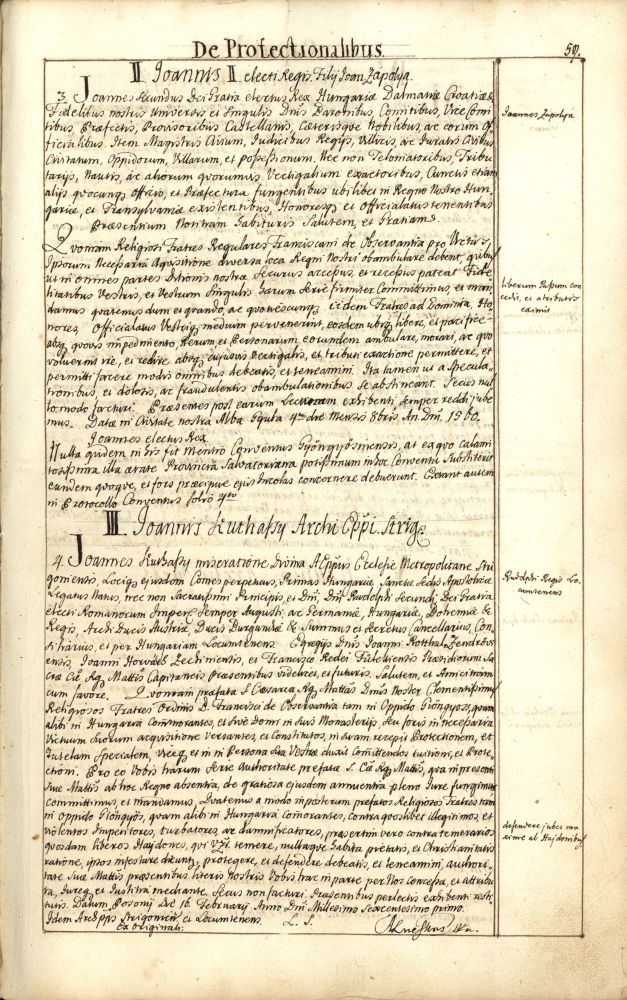 De Protectionalibus
59.
II Joannis II electi Regis Filij Joan Zápolya.
3. Joannes Secundus Dei Gratia electus Rex Hungariæ Dalmatiæ Croatiæ &
Fidelibus nostris Universis et Singulis Dnis Baronibus, Comitibus, Vice Comi
tibus Præfectis, Provisoribus Castellanis, Cæterisque Nobilibus, ac eorum Of
ficialibus. Item Magistris Civium, Judicibus Regijs, Villicis, ac Juratis Civibus
Civitatum, Oppidorum, Villarum, et possessionum. Nec non Telonatoribus, Tribu
tarijs, Nautis, ac aliorum quorumvis Vectigalium exactoribus, Cunctis etiam
alijs quocunq officio, et Præfectura fungentibus ubilibet in Regno Nostro Hun,
gariæ, et Transylvaniæ existentibus, Honoresq et officialatus tenentibus
Præsentium Notitiam habituris Salutem, et Gratiam.
Quoniam Religiosi Fratres Regulares Franciscani de Observantia pro Victus,
Ipsorum Necessaria Aquisitione diversa loca Regni Nostri obambulare debent, quibus
ut in omnes partes Ditionis nostræ Securus accessus, et recessus pateat Fide
litatibus Vestris, et Vestrum Singulis harum Serie firmiter Committimus, et man
damus quatenus dum et quando, ac quotiescunq ijdem Fratres ad Dominia, Ho
nores, Officialatus Vestriq medium pervenerint, eosdem ubiq libere, et pacifice
absq quovis impedimento, Rerum, et Personarum eorundem ambulare, morari, ac quo
voluerint ire, et redire absq cujusvis Vectigalis, et tributi exactione permittere, et
permitti facere modis omnibus debeatis, et teneamini. Ita tamen ut a specula,
tionibus, et dolosis, ac fraudulentis obambulationibus se abstineant. Secus nul
lo modo facturi. Præsentes post earum Lecturam exhibenti semper reddi jube
mus. Data in Civitate nostra Alba Gyula 4ta die Mensis 8bris An. Dni. 1560.
Joannes electus Rex
Nulla quidem in his fit mentio Conventus Gyöngyösiensis, at ex quo calami
tosissima illa ætate Provincia Salvatoriana potissimum in hoc Conventu Substiterit
eundem quoque, et fors præcipue ejus Incolas concernere debuerunt. Extant autem
in Protocollo Conventus folio 4to
III Joannis Kuthassy Archi Eppi. Strig.
4. Joannes Kuthassy miseratione Divina AEppus Ecclesiæ Metropolitanæ Stri
goniensis, Lociq ejusdem Comes perpetuus, Primas Hungariæ Sanctæ Sedis Apostolicæ
Legatus Natus, nec non Sacratissimi Principis, et Dni, Dni Rudolphi Secundi Dei Gratia
electi Romanorum Imper. Semper Augusti, ac Germaniæ, Hungariæ, Bohemiæ &
Regis, Archi Ducis Austriæ, Ducis Burgundiæ & Summus et Secretus Cancellarius, Con
siliarius, et per Hungariam Locumtenens. Egregijs Dnis Joanni Rotthal Zendrövi
ensis, Joanni Horváth Zechiniensis, et Francisco Redei Filekiensis Præsidiorum Sa
cræ Cæ Rq Mattis Capitaneis præsentibus videlicet, et futuris. Salutem, et Amicitiam
cum favore. Quoniam præfata S. Cæsarea Rq Mattas Dnus Noster Clementissimus
Religiosos Fratres Ordinis D. Francisci de Observantia tam in Oppido Giöngyös, quam
alibi in Hungaria Commorantes, et Sive domi in Suis Monasterijs Seu foris in necessaria
Victuum Suorum acquisitione versantes, et Constitutos, in Suam recepit Protectionem, et
Tutelam Specialem, Vicesq et in Persona Sua Vestræ duxit Comittendos tuitioni, et Prote,
ctioni. Pro eo Vobis harum serie Authoritate præfatæ S. Cæ Rq Mattis, qua in præsenti
Suæ Mattis ab hoc Regno absentia, de gratiosa ejusdem annuentia pleno Jure fungimur
committimus, et mandamus, Quatenus a modo in posterum præfatos Religiosos Fratres tam
in Oppido Giöngyös, quam alibi in Hungaria Comorantes, contra quoslibet illegitimos, et
violentos Impetitores, turbatores, ac damnificatores, præsertim vero contra temerarios
quosdam liberos Haydones, qui Vti temere, nullaque habita pietatis, et Christianitatis
ratione, ipsos infestare dicuntur, protegere, et defendere debeatis, et teneamini, authori
tate Suæ Mattis præsentibus literis Nostris Vobis hac in parte per Nos Concessa, et attribu
ta, Jureq et Justitia mediante. Secus non facturi. Præsentibus perlectis exhibenti resti
tutis. Datum Posony Die 16. February Anno Dni Millesimo Sexcentesimo primo.
Idem ArchEppus Strigoniensis et Locumtenens.
ex originali.
L. S.
Joannes Zapolya
liberum Passum con
cedit, et a tributis
eximit
Rudolphi Regis Lo
cumtenens
defendere jubet ma
xime ab Hajdonibus